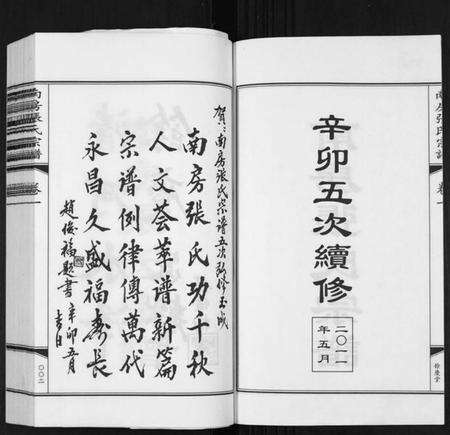 南房張氏宗譜
卷一
辛卯五次續修
二〇一一
年五月
賀：南房張氏宗譜五次續修玉成
南房張氏功千秋
人文薈萃譜新篇
宗譜例律傳萬代
永昌久盛福壽長
趙俊福題書 辛卯五月
吉日
南房張氏宗譜
卷一
〇〇二